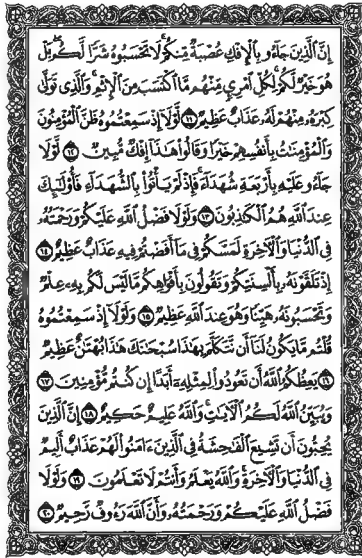 إِنَّ ٱلَّذِينَ جَآءُو بِٱلۡإِفۡكِ عُصۡبَةٞ مِّنكُمۡۚ لَا تَحۡسَبُوهُ شَرّٗا لَّكُمۖ بَلۡ
هُوَ خَيۡرٞ لَّكُمۡۚ لِكُلِّ ٱمۡرِيٕٖ مِّنۡهُم مَّا ٱكۡتَسَبَ مِنَ ٱلۡإِثۡمِۚ وَٱلَّذِي تَوَلَّىٰ
كِبۡرَهُۥ مِنۡهُمۡ لَهُۥ عَذَابٌ عَظِيمٞ ١١ لَّوۡلَآ إِذۡ سَمِعۡتُمُوهُ ظَنَّ ٱلۡمُؤۡمِنُونَ
وَٱلۡمُؤۡمِنَٰتُ بِأَنفُسِهِمۡ خَيۡرٗا وَقَالُواْ هَٰذَآ إِفۡكٞ مُّبِينٞ ١٢ لَّوۡلَا
جَآءُو عَلَيۡهِ بِأَرۡبَعَةِ شُهَدَآءَۚ فَإِذۡ لَمۡ يَأۡتُواْ بِٱلشُّهَدَآءِ فَأُوْلَٰٓئِكَ
عِندَ ٱللَّهِ هُمُ ٱلۡكَٰذِبُونَ ١٣ وَلَوۡلَا فَضۡلُ ٱللَّهِ عَلَيۡكُمۡ وَرَحۡمَتُهُۥ
فِي ٱلدُّنۡيَا وَٱلۡأٓخِرَةِ لَمَسَّكُمۡ فِي مَآ أَفَضۡتُمۡ فِيهِ عَذَابٌ عَظِيمٌ ١٤
إِذۡ تَلَقَّوۡنَهُۥ بِأَلۡسِنَتِكُمۡ وَتَقُولُونَ بِأَفۡوَاهِكُم مَّا لَيۡسَ لَكُم بِهِۦ عِلۡمٞ
وَتَحۡسَبُونَهُۥ هَيِّنٗا وَهُوَ عِندَ ٱللَّهِ عَظِيمٞ ١٥ وَلَوۡلَآ إِذۡ سَمِعۡتُمُوهُ
قُلۡتُم مَّا يَكُونُ لَنَآ أَن نَّتَكَلَّمَ بِهَٰذَا سُبۡحَٰنَكَ هَٰذَا بُهۡتَٰنٌ عَظِيمٞ
١٦ يَعِظُكُمُ ٱللَّهُ أَن تَعُودُواْ لِمِثۡلِهِۦٓ أَبَدًا إِن كُنتُم مُّؤۡمِنِينَ ١٧
وَيُبَيِّنُ ٱللَّهُ لَكُمُ ٱلۡأٓيَٰتِۚ وَٱللَّهُ عَلِيمٌ حَكِيمٌ ١٨ إِنَّ ٱلَّذِينَ
يُحِبُّونَ أَن تَشِيعَ ٱلۡفَٰحِشَةُ فِي ٱلَّذِينَ ءَامَنُواْ لَهُمۡ عَذَابٌ أَلِيمٞ
فِي ٱلدُّنۡيَا وَٱلۡأٓخِرَةِۚ وَٱللَّهُ يَعۡلَمُ وَأَنتُمۡ لَا تَعۡلَمُونَ ١٩ وَلَوۡلَا
فَضۡلُ ٱللَّهِ عَلَيۡكُمۡ وَرَحۡمَتُهُۥ وَأَنَّ ٱللَّهَ رَءُوفٞ رَّحِيمٞ ٢٠